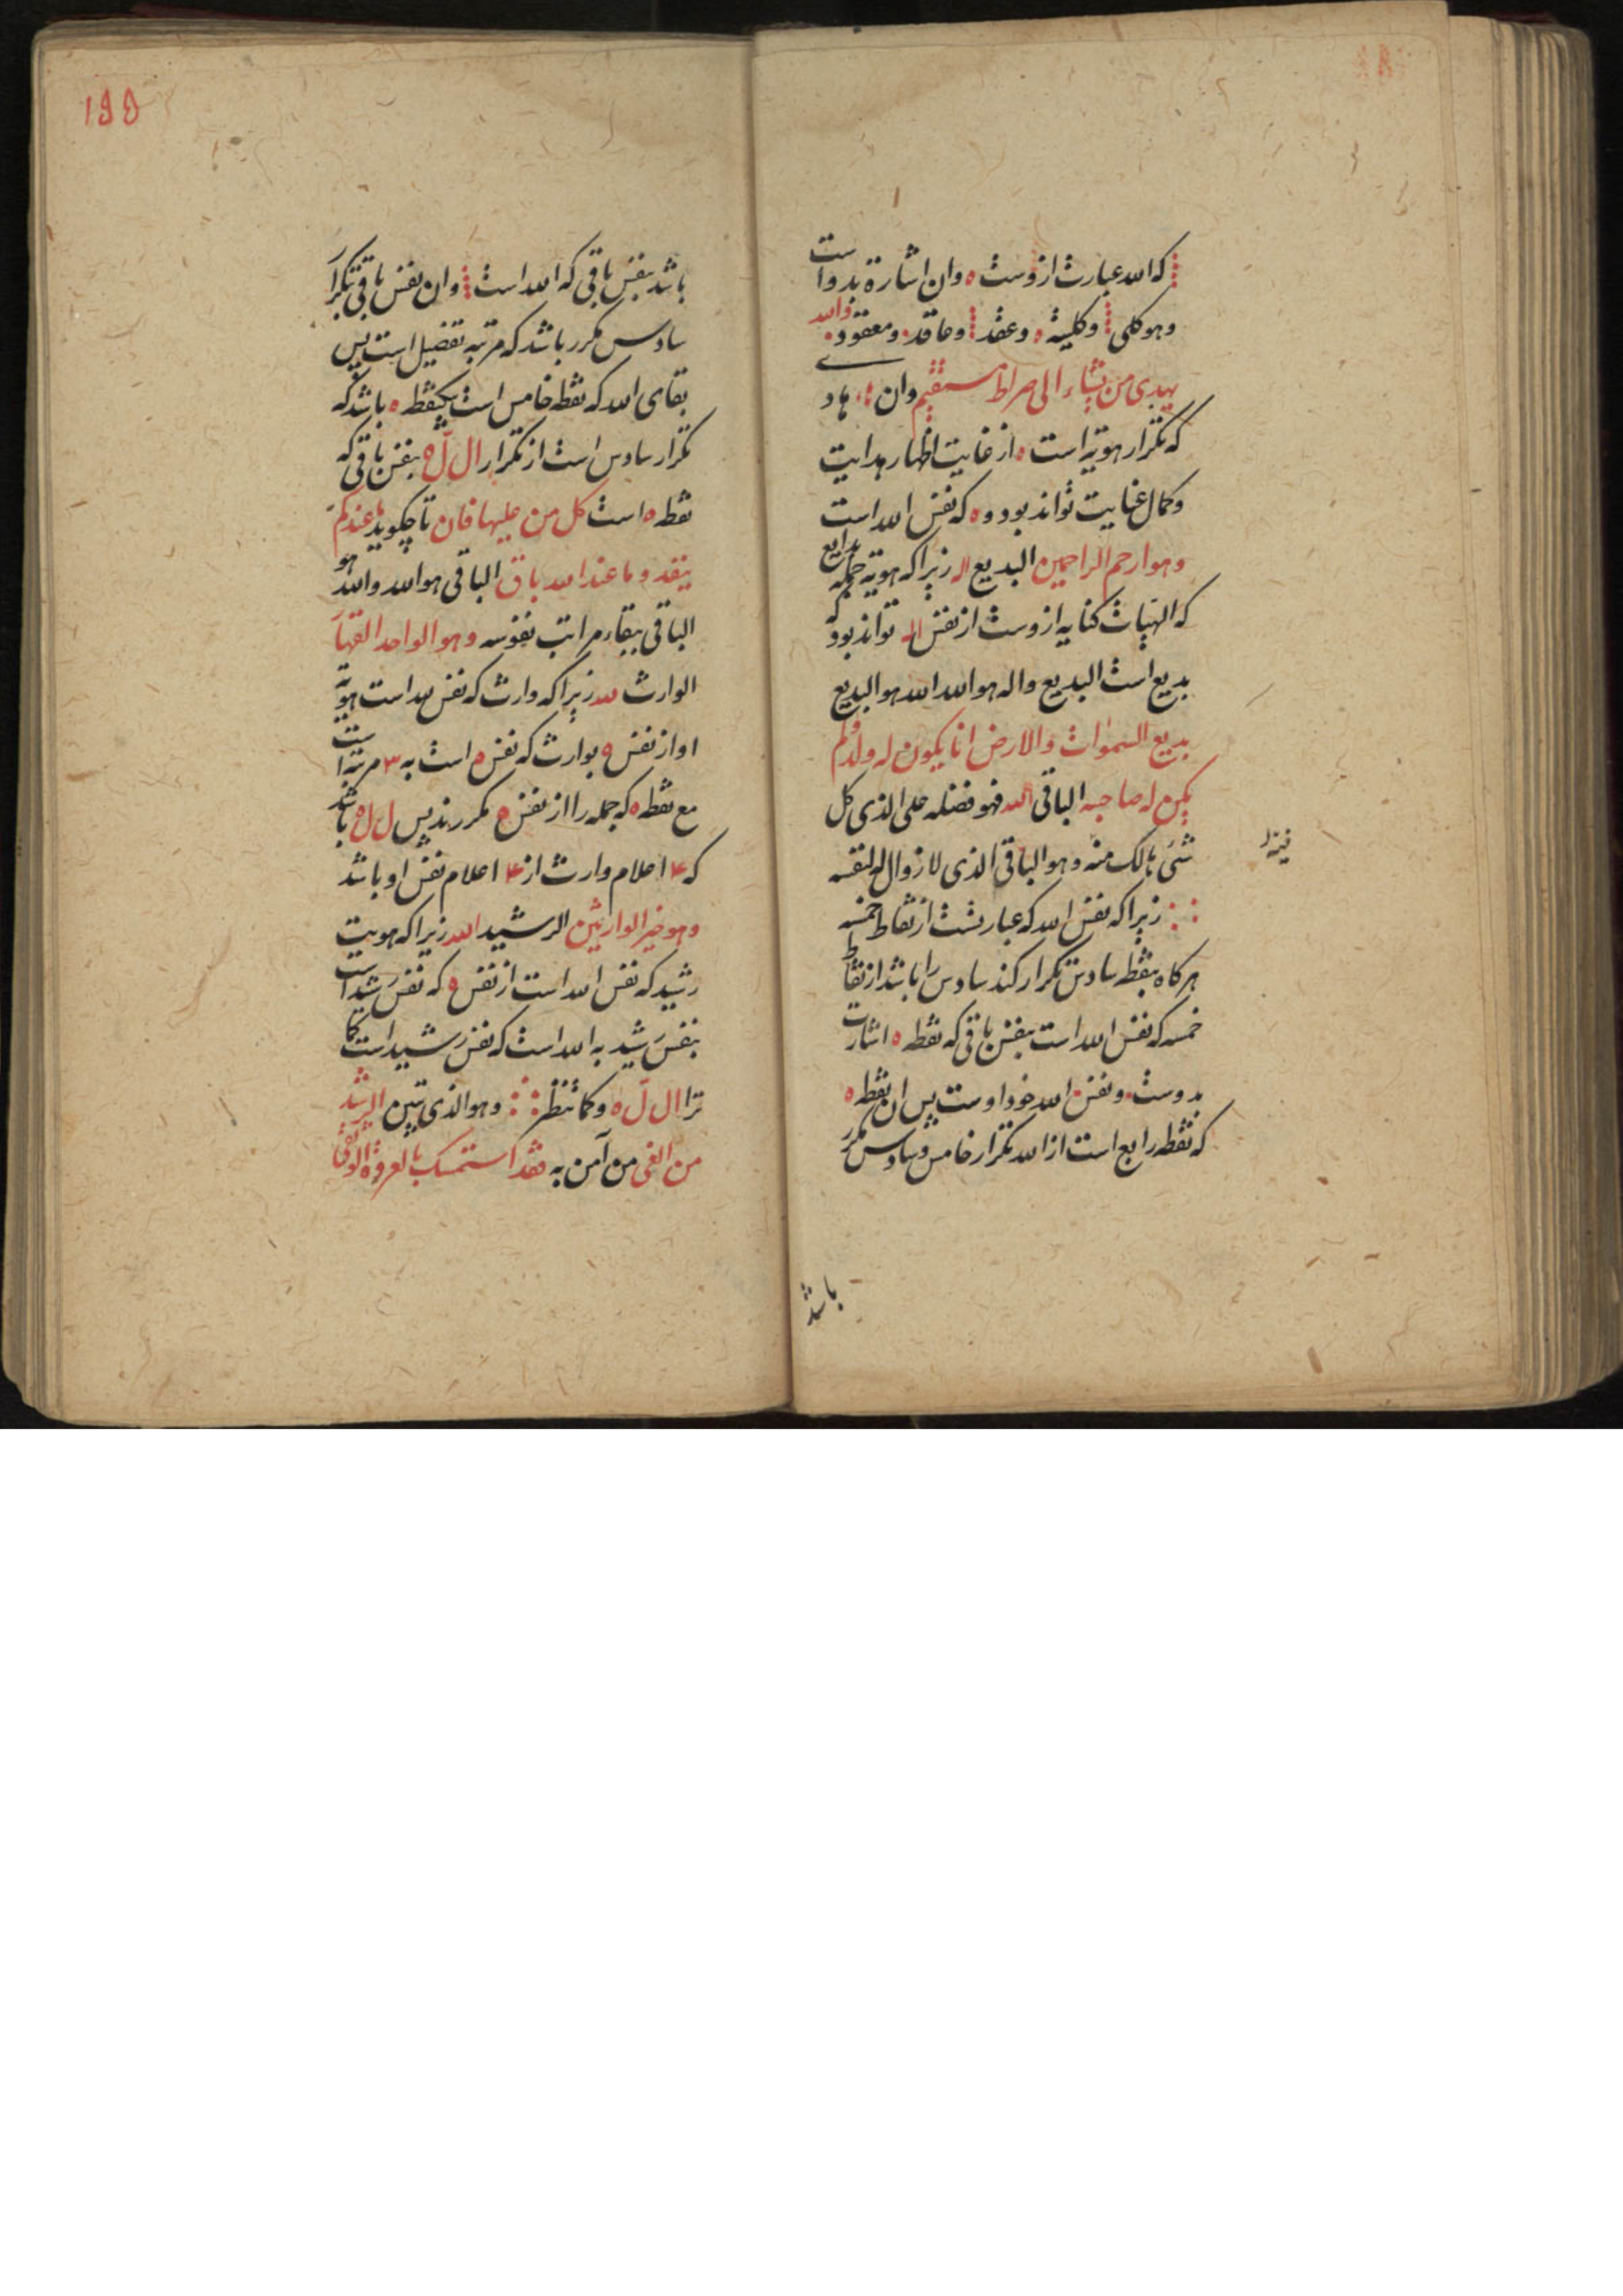 که الله عبارت ازوست ه وان اشارة بدو است
وهو کلی وکلیته ه وعقد وعاقد ومعقود والله
یهدی من یشاء الی صراط مستقیم وان هاد
که تکرار هویة است ه از غایت اظهار هدایت
وکمال عنایت تواند بود و ه که نفس الله است
وهو ارحم الراحمین البدیع اله زیرا که هویة جمله بدایع
که الهیات کنایه ازوست از نفس اله تواند بود که
بدیع است البدیع واله هو الله الله هو البدیع
بدیع السموات والارض انا یکون له ولد ولم
یکن له صاحبه الباقی الله فهو فضله علی الذی کل
شئ هالک منه وهو الباقی الذی لا زوال له لنفسه
زیرا که نفس الله که عبارتست از نقاط خمسه
هر کاه بنقطه سادس تکرار کند سادس را باشد از نقاط
خمسه که نفس الله است بنفس باقی که نقطه ه اشارت
بدوست ونفس الله خود اوست پس ان نقطه ه
که نقطه رابع است از الله تکرار خامس وسادس مکرر
باشد
۱۵۵
باشد بنفس باقی که الله است وان نفس باقی بتکرار
سادس مکرر باشد که مرتبه تفضیل است پس
بقای الله که نقطه خامس است بیکنقطه ه باشد که
تکرار سادس است از تکرار ال ل ه بنفس باقی که
نقطه ه است کل من علیها فان تا چکوید ما عندکم
ینفد وما عند الله باق الباقی هو الله والله هو
الباقی ببقاء مراتب نفوسه وهو الواحد القهار
الوارث لله زیرا که وارث که نفس لله است هویة
او از نفس ه بوارث که نفس ه است به ۳ مرتبه است
مع نقطه ه که جمله را از نفس ه مکررند پس ل ل ه باشد
که ۴ اعلام وارث از ۴ اعلام نفس او باشد
وهو خیر الوارثین الرشید الله زیرا که هویت
رشید که نفس الله است از نفس ه که نفس رشید است
بنفس رشید به الله است که نفس رشید است کما
ترا ال ل ه وکما تنظر وهو الذی تبین الرشد
من الغی من آمن به فقد استمسک بالعروة الوثقی